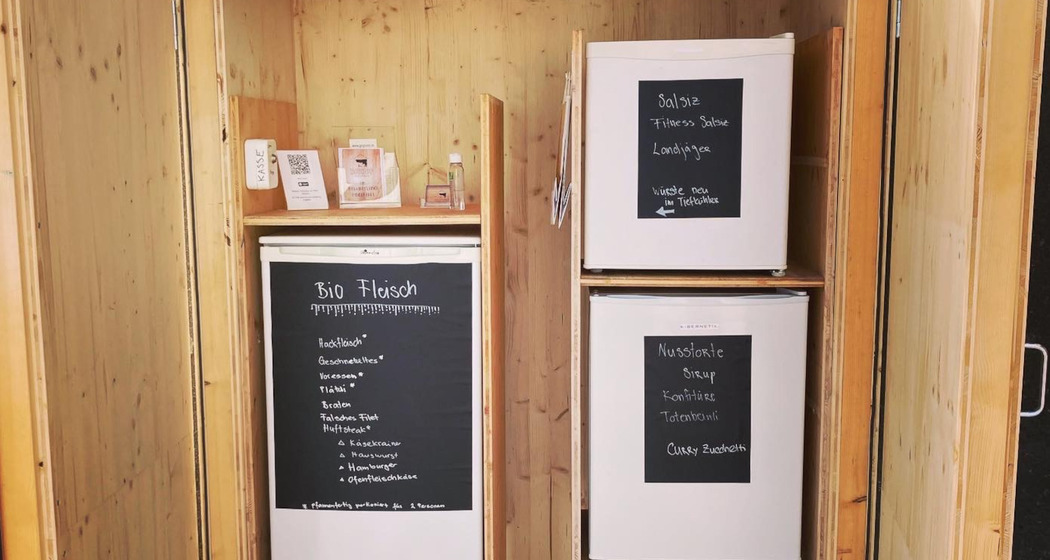 KASSE
Bio Fleisch
Hackfleisch*
Geschnetzeltes*
Voressen*
Plätzli*
Braten
Falsches Filet
Huftsteak*
Käsekrainer
Hauswurst
Hamburger
Ofenfleischkäse
* Pfannenfertig portioniert für 2 Personen
Salsiz
Fitness Salsiz
Landjäger
Würste neu
im Tiefkühler
Nusstorte
Sirup
Konfitüre
Totenbeinli
Curry Zucchetti